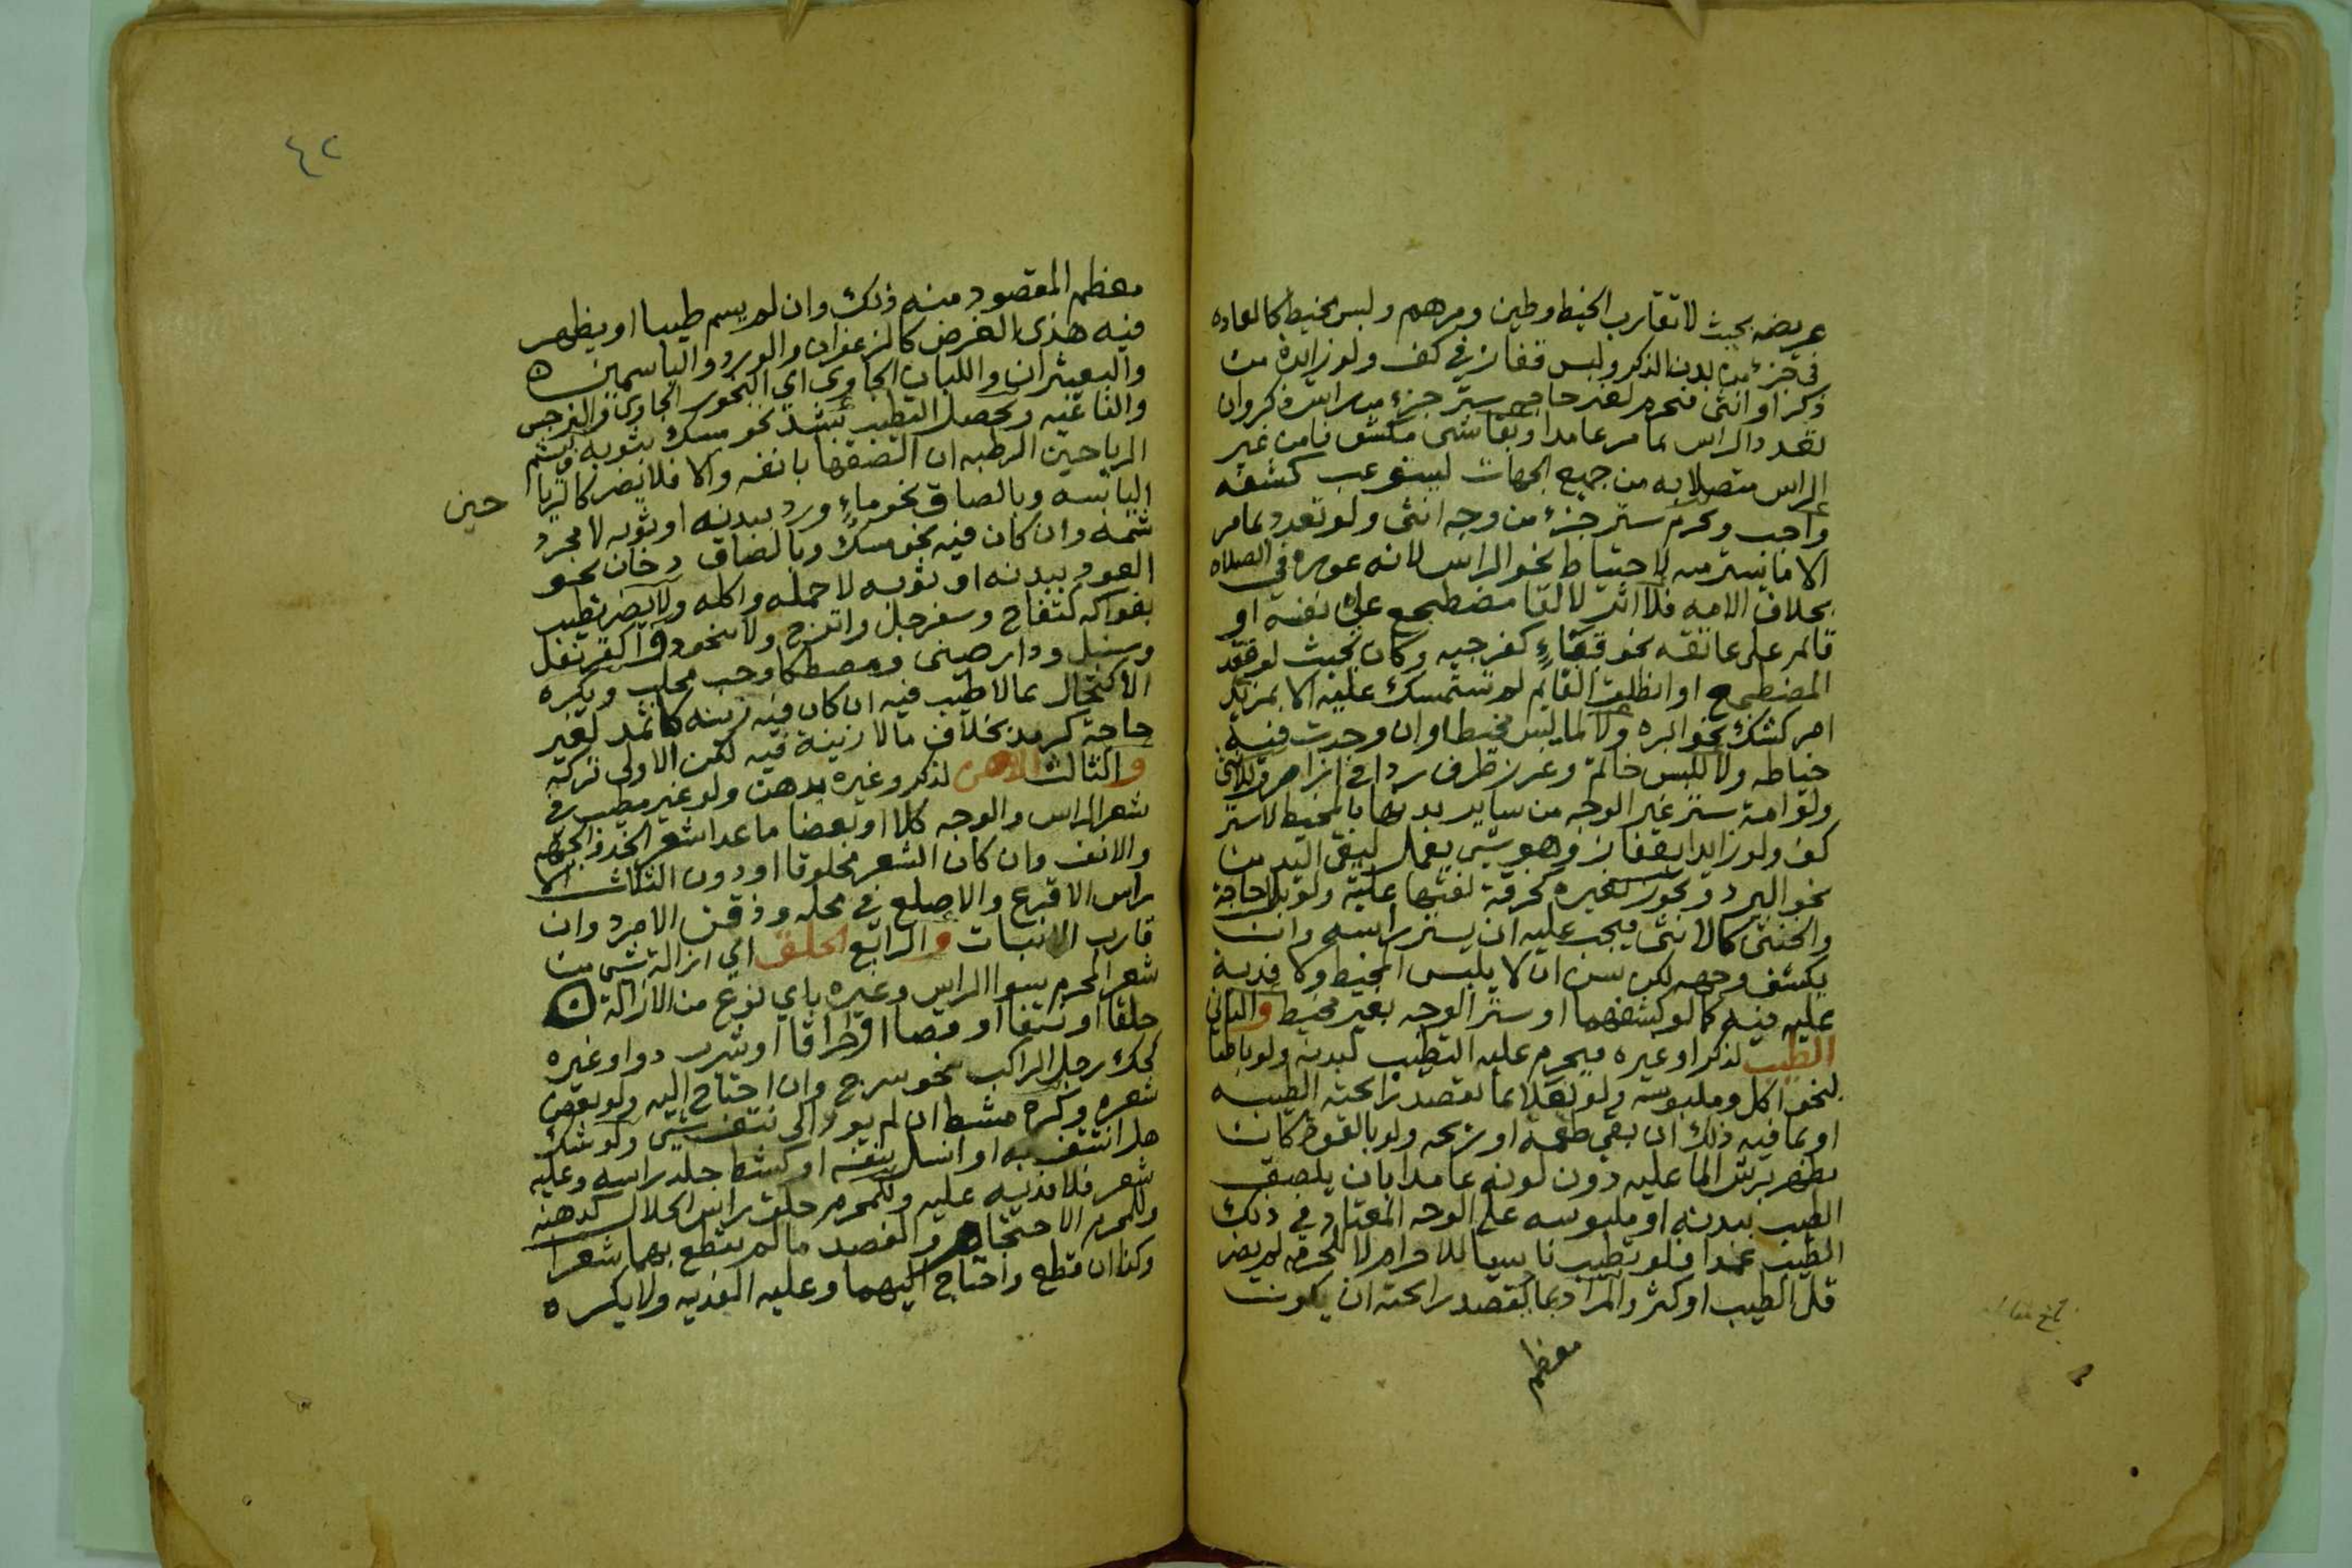 عريضه بحيث لا تقارب الخيط وطين ومرهم ولبس مخيط كالعاده
في جزء من بدن الذكر ولبس قفاز في كف ولو زايدة من
ذكر او انثى فيحرم لغير حاجه ستر جزء من راس ذكر وان
تعدد الراس بما مر عامدا او بقاشى من غير
الراس متصلا به من جميع الجهات ليستوعب كشفه
واجب ويحرم ستر جزء من وجه انثى ولو تعدد بما مر
الا ما يستر من لاحتياط نحو الراس لانه عورة في الصلاه
بخلاف الامه فلا اثر لالقا مضطجع على نفسه او
قائم على عاتقه نحو قباء كفرجيه وكان بحيث لو قعد
المضطجع او انطلق القايم لم يستمسك عليه الا بمزيد
امر كشك بنحو ابره ولا لما ليس مخيطا وان وجدت فيه
خياطه ولا للبس خاتم وغرز طرف ردا في ازار وللانثى
ولو امة ستر غير الوجه من ساير بدنها بالمخيط لا ستر
كف ولو زايدا بقفاز وهو شي يعمل ليقى اليد من
نحو البرد ويجوز بغيره كخرقة لفتها عليه ولو بلا حاجة
والخنثى كالانثى فيجب عليه ان يستر راسه وان
يكشف وجهه لكن سن ان لا يلبس المخيط ولا فدية
عليه فيه كما لو كشفهما او ستر الوجه بغير مخيط والثاني
الطيب لذكر او غيره فيحرم عليه التطيب لبدنه ولو باطنا
بنحو اكل وملبوسه ولو نعلا بما تقصد رائحته الطيبه
او بما فيه ذلك ان بقي طعمه او ريحه ولو بالقوة كان
يظهر برش الما عليه دون لونه عامدا بان يلصق
الطيب ببدنه او ملبوسه على الوجه المعتاد في ذلك
الطيب عمدا فلو تطيب ناسيا للاحرام لا للحرمه لم يضر
قل الطيب او كثر والمراد بما تقصد رائحته ان يكون
معظم
٤٢
معظم المقصود منه ذلك وان لم يسم طيبا او يظهر
فيه هذى الغرض كالزعفران والورد والياسمين
والبعيثران واللبان الجاوى اي البخور الجاوى والنرجس
والفاغيه ويحصل التطيب بشد نحو مسك بثوبه وبشم
الرياحين الرطبه ان الصقها بانفه والا فلا يضر كالريا
حين
اليابسه وبالصاق نحو ماء ورد ببدنه او ثوبه لا مجرد
شمه وان كان فيه نحو مسك وبالصاق دخان نحو
العود ببدنه او ثوبه لا حمله واكله ولا يضر تطيب
بفواكه كتفاح وسفرجل واترج ولا بنحو دوآ كقرنفل
وسنبل ودارصينى ومصطكا وحب محلب ويكره
الاكتحال بما لا طيب فيه ان كان فيه زينه كاثمد لغير
حاجة كرمد بخلاف ما لا زينة فيه لكن الاولى تركه
والثالث الدهن لذكر وغيره بدهن ولو غير مطيب في
شعر الراس والوجه كلا او بعضا ما عدا شعر الخد والجبهه
والانف وان كان الشعر محلوقا او دون الثلاث الا
راس الاقرع والاصلع في محله وذقن الامرد وان
قارب الانبات والرابع الحلق اي ازالة شي من
شعر المحرم سوا الراس وغيره باي نوع من الازالة
حلقا او نتفا او قصا او احراقا او شرب دوا وغيره
كحك رجل الراكب بنحو سرج وان احتاج اليه ولو بعض
شعره وكره مشط ان لم يود الى نتف شي ولو شك
هل انتتف به او انسل بنفسه او كشط جلد راسه وعليه
شعر فلا فدية عليه وللمحرم حلق راس الحلال كدهنه
وللمحرم الاحتجام والفصد ما لم يقطع بهما شعرا
وكذا ان قطع واحتاج اليهما وعليه الفديه ولا يكره